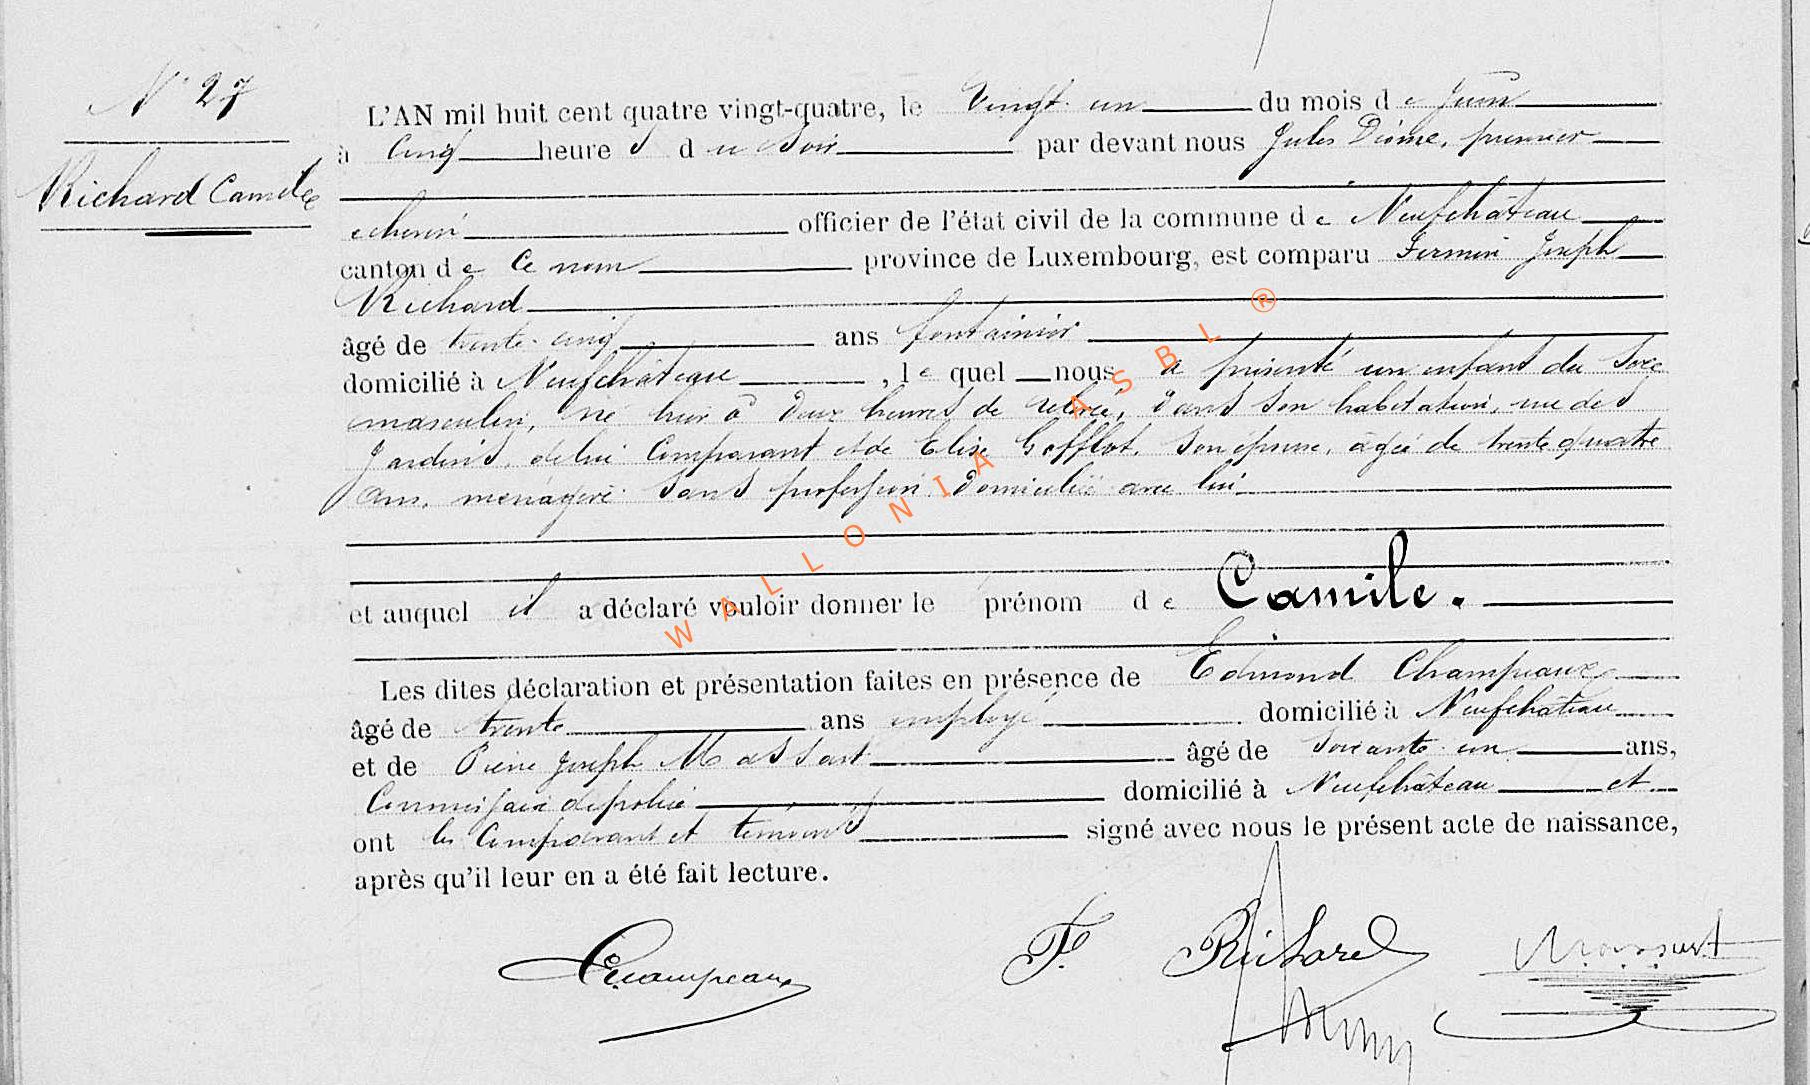 N° 27
Richard Camile
L'AN mil huit cent quatre vingt-quatre, le Vingt-un du mois de Juin
à Cinq heures du Soir par devant nous Jules Diome, premier
échevin officier de l'état civil de la commune de Neufchâteau
canton de Ce nom province de Luxembourg, est comparu Firmin Joseph
Richard
âgé de trente-cinq ans fontainier
domicilié à Neufchâteau, lequel nous a présenté un enfant du Sexe
masculin, né hui à Deux heures de relevée, Dans Son habitation, rue des
Jardins, de lui Comparant et de Elise Gofflot, Son épouse, âgée de trente quatre
ans, ménagère Sans profession Domiciliée avec lui
et auquel il a déclaré vouloir donner le prénom de Camile.
Les dites déclaration et présentation faites en présence de Edmond Champeaux
âgé de trente ans employé domicilié à Neufchâteau
et de Pierre Joseph Massart âgé de Soixante-un ans,
Commissaire de police domicilié à Neufchâteau et
ont les Comparant et témoins signé avec nous le présent acte de naissance,
après qu'il leur en a été fait lecture.
Champeaux F. Richard Massart
WALLONIA ASBL ®